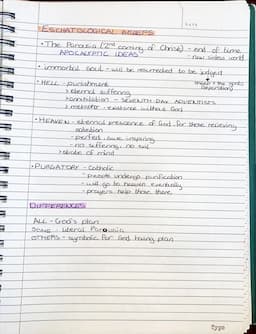 ESCHATOLOGICAL BELIEFS
• The Parousia (2nd coming of Christ) - end of time
APOCALYPTIC IDEAS - new sinless world
• immortal soul - will be resurrected to be judged
• HELL - punishment
> eternal suffering
> annihilation - SEVENTH DAY ADVENTISTS
> metaphor - existence without God
• HEAVEN - eternal presence of God for those receiving
salvation
- perfect, awe inspiring
- no suffering, no evil
> state of mind
• PURGATORY - Catholic
- people undergo purification
- will go to heaven eventually
- prayers help those there
DIFFERENCES
ALL - God's plan
SOME - literal Parousia
OTHERS - symbolic for God having plan
typo